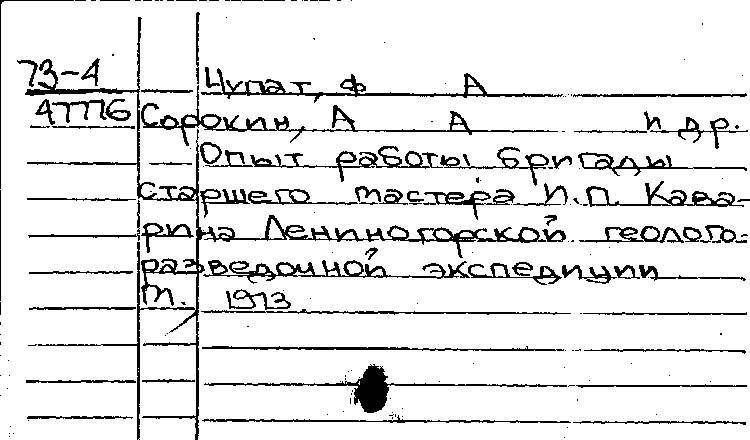 73-4 Цупат, Ф А
47776 Сорокин, А А и др.
Опыт работы бригады
старшего мастера И.П. Кава-
рина Лениногорской геолого-
разведочной экспедиции
М. 1973.